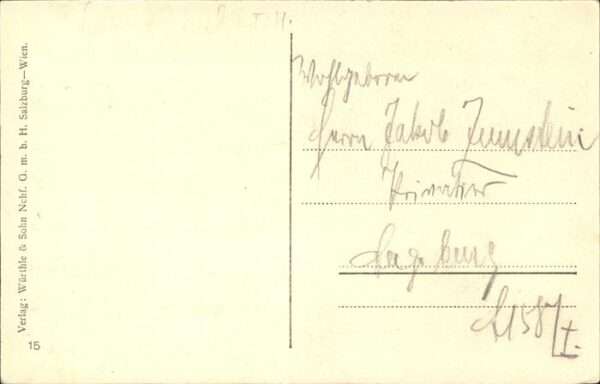 Verlag: Würthle & Sohn Nchf. G. m. b. H. Salzburg—Wien.
15
Wohlgeboren
Herrn Jakob Zumstein
Privatier
Augsburg
A158/I.